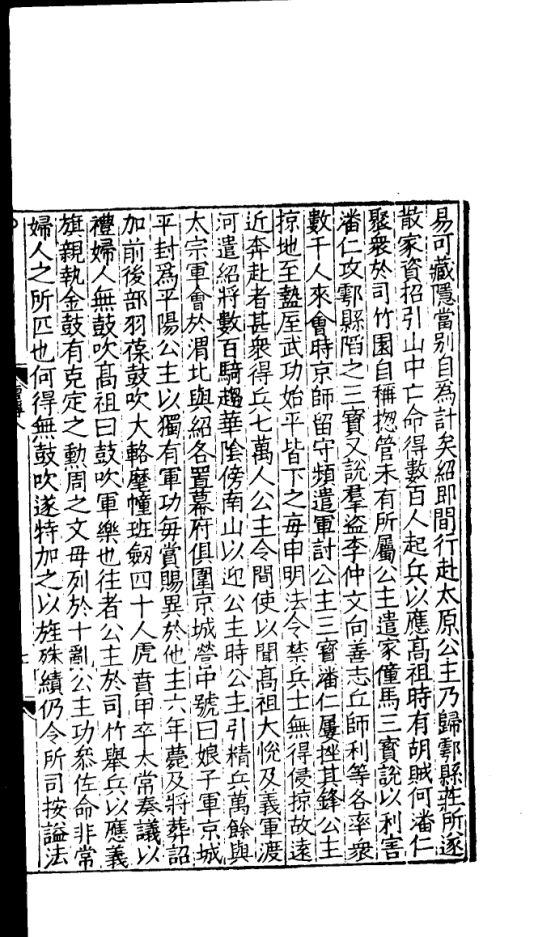 易可藏隱當别自為計矣紹即間行赴太原公主乃歸鄠縣莊所遂
散家資招引山中亡命得數百人起兵以應髙祖時有胡賊何潘仁
聚衆於司竹園自稱揔管未有所屬公主遣家僮馬三寶說以利害
潘仁攻鄠縣䧟之三寶又說羣盗李仲文向善志丘師利等各率衆
數千人來會時京師留守頻遣軍討公主三寳潘仁屢挫其鋒公主
掠地至盩厔武功始平皆下之毎申明法令禁兵士無得侵掠故遠
近奔赴者甚衆得兵七萬人公主令間使以聞髙祖大悅及義軍渡
河遣紹將數百騎趨華隂傍南山以迎公主時公主引精兵萬餘與
太宗軍會於渭北與紹各置幕府俱圍京城營中號曰娘子軍京城
平封爲平陽公主以獨有軍功每賞賜異於他主六年薨及將葬詔
加前後部羽葆鼓吹大輅麾幢班劒四十人虎賁甲卒太常奏議以
禮婦人無鼓吹髙祖曰鼓吹軍樂也往者公主於司竹舉兵以應義
旗親執金鼓有克定之勳周之文母列於十亂公主功叅佐命非常
婦人之所匹也何得無鼓吹遂特加之以旌殊績仍令所司按謚法